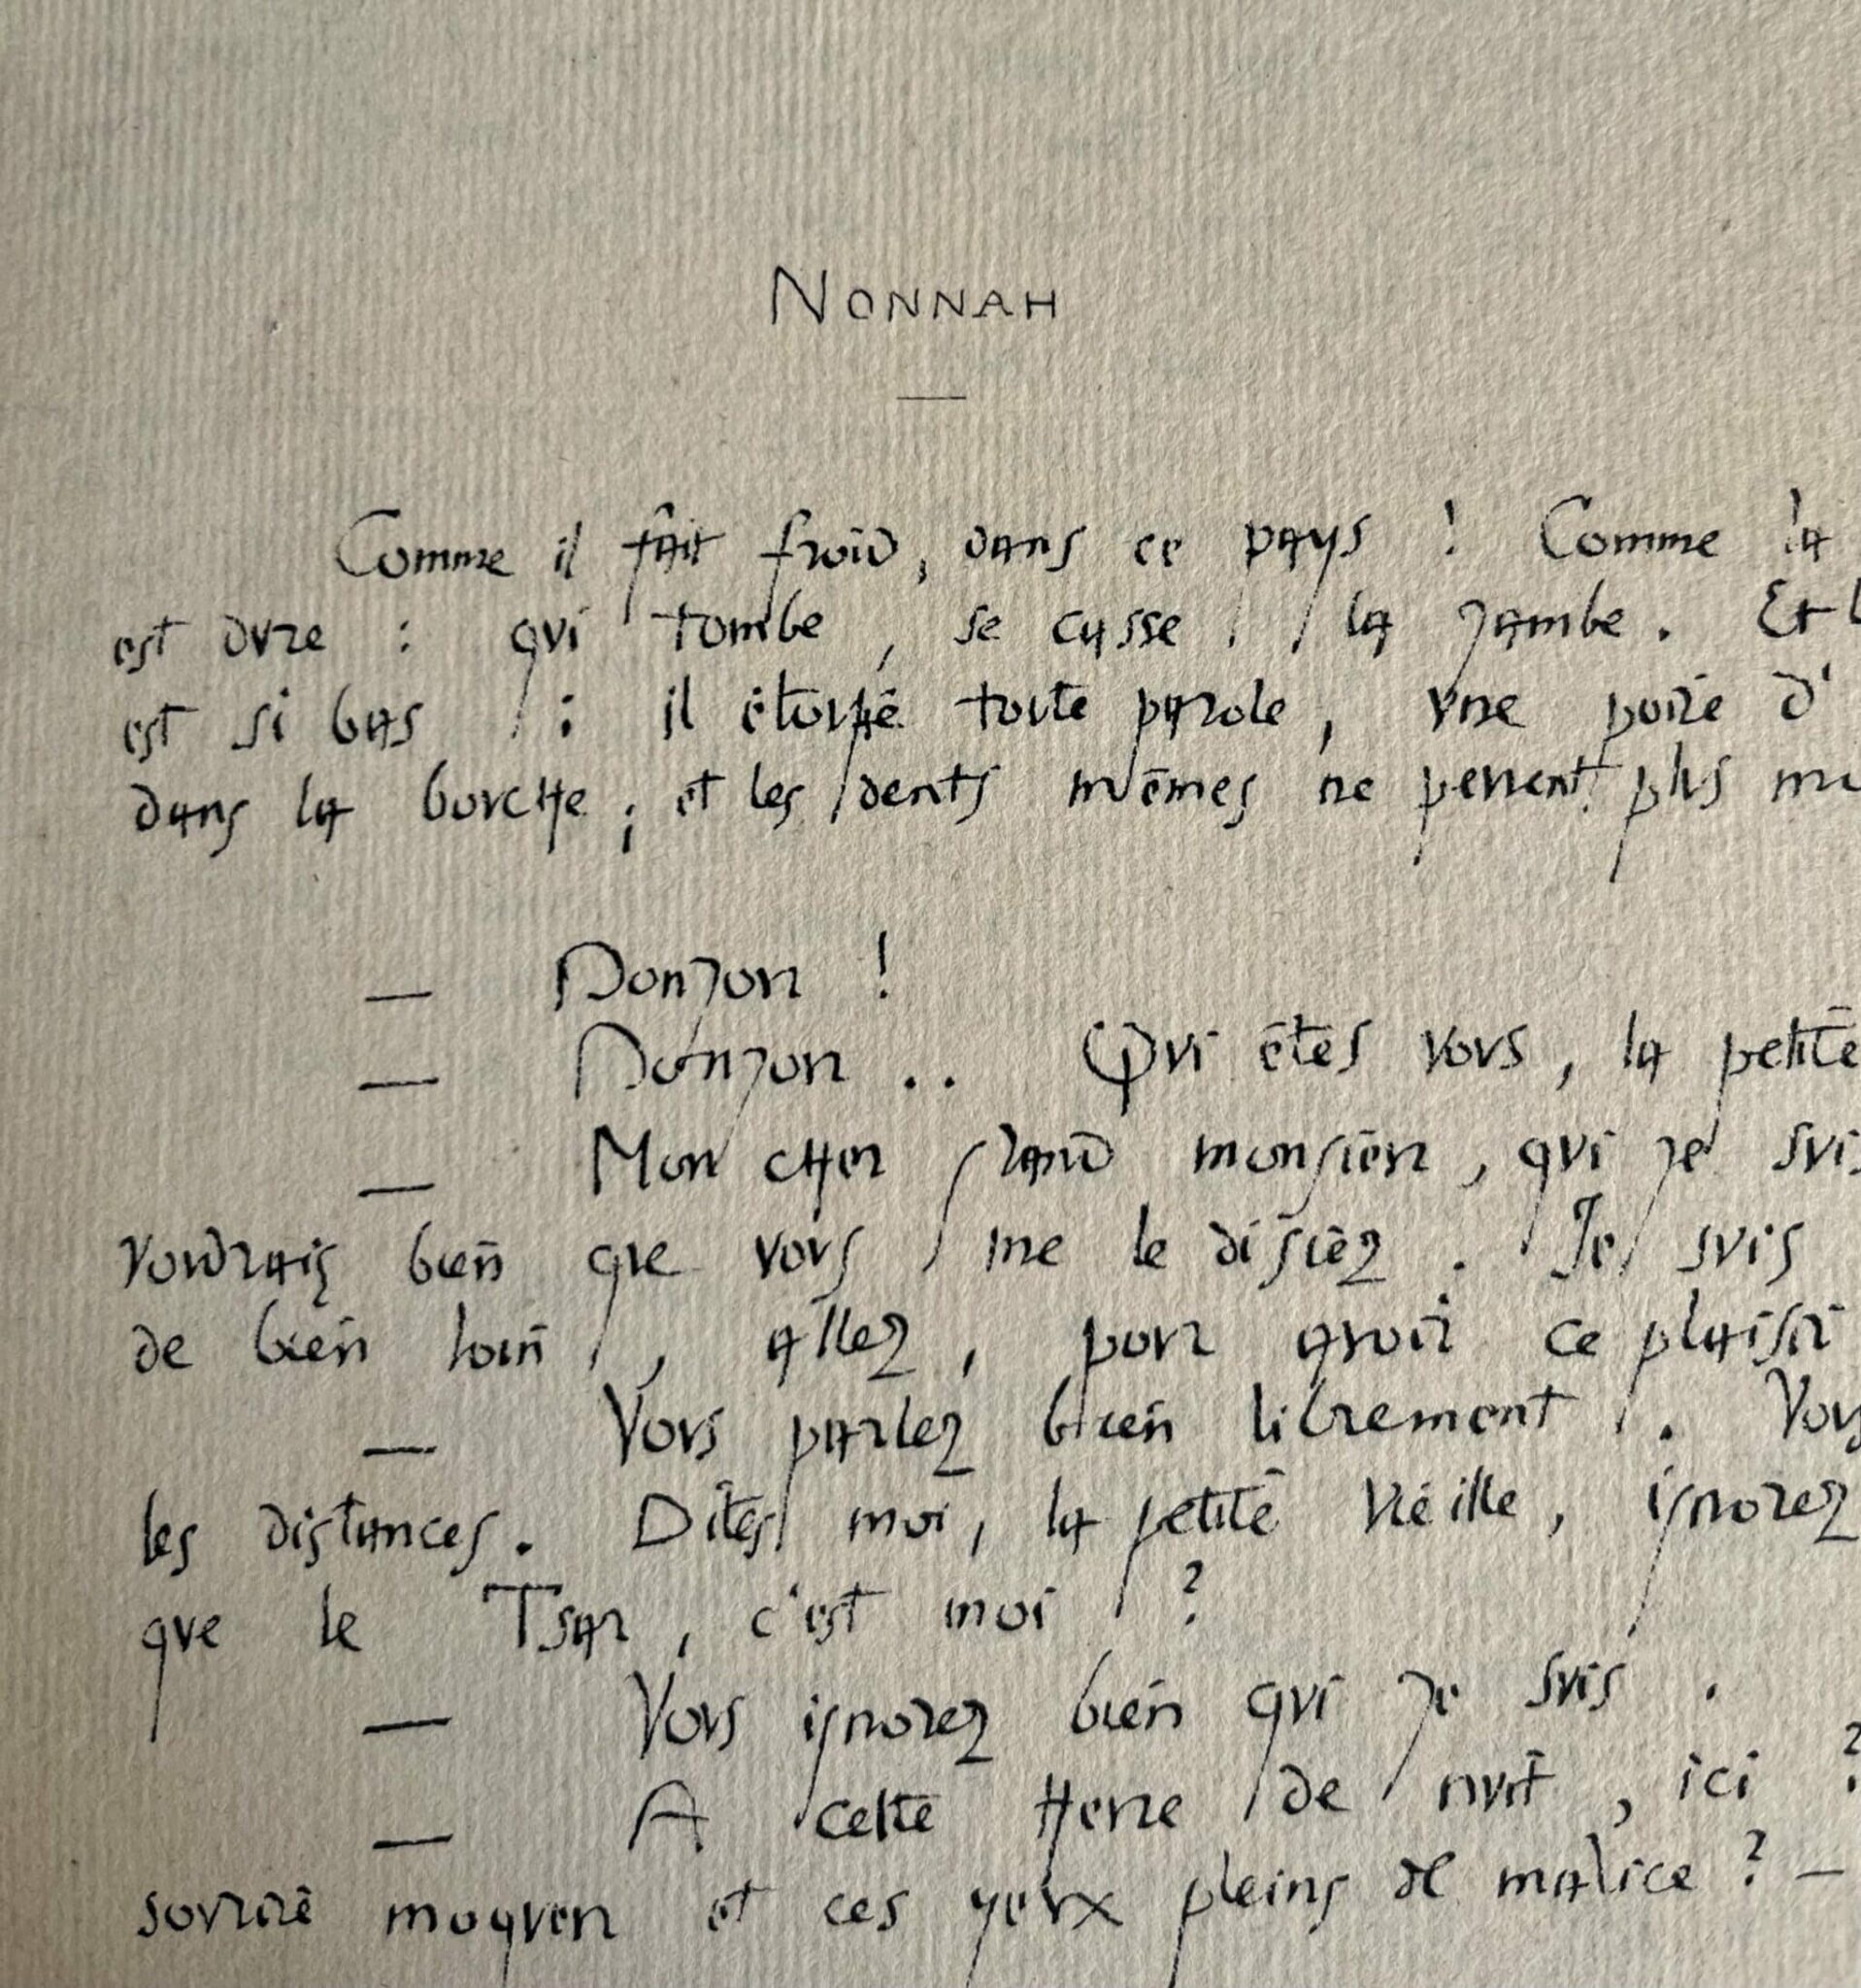 NONNAH
Comme il fait froid, dans ce pays ! Comme la
est dure : qui tombe, se casse la jambe. Et
est si bas : il étouffe toute parole, une poire d'
dans la bouche ; et les dents mêmes ne peuvent plus
— Bonjour !
— Bonjour .. Qui êtes vous, la petite
— Mon cher grand monsieur, qui je suis
voudrais bien que vous me le disiez. Je suis
de bien loin, allez, pour avoir ce plaisir
— Vous parlez bien librement. Vous
les distances. Dites moi, la petite vieille, ignorez
que le Tsar, c'est moi ?
— Vous ignorez bien qui je suis.
— A cette heure de nuit, ici ?
sourire moqueur et ces yeux pleins de malice ? —